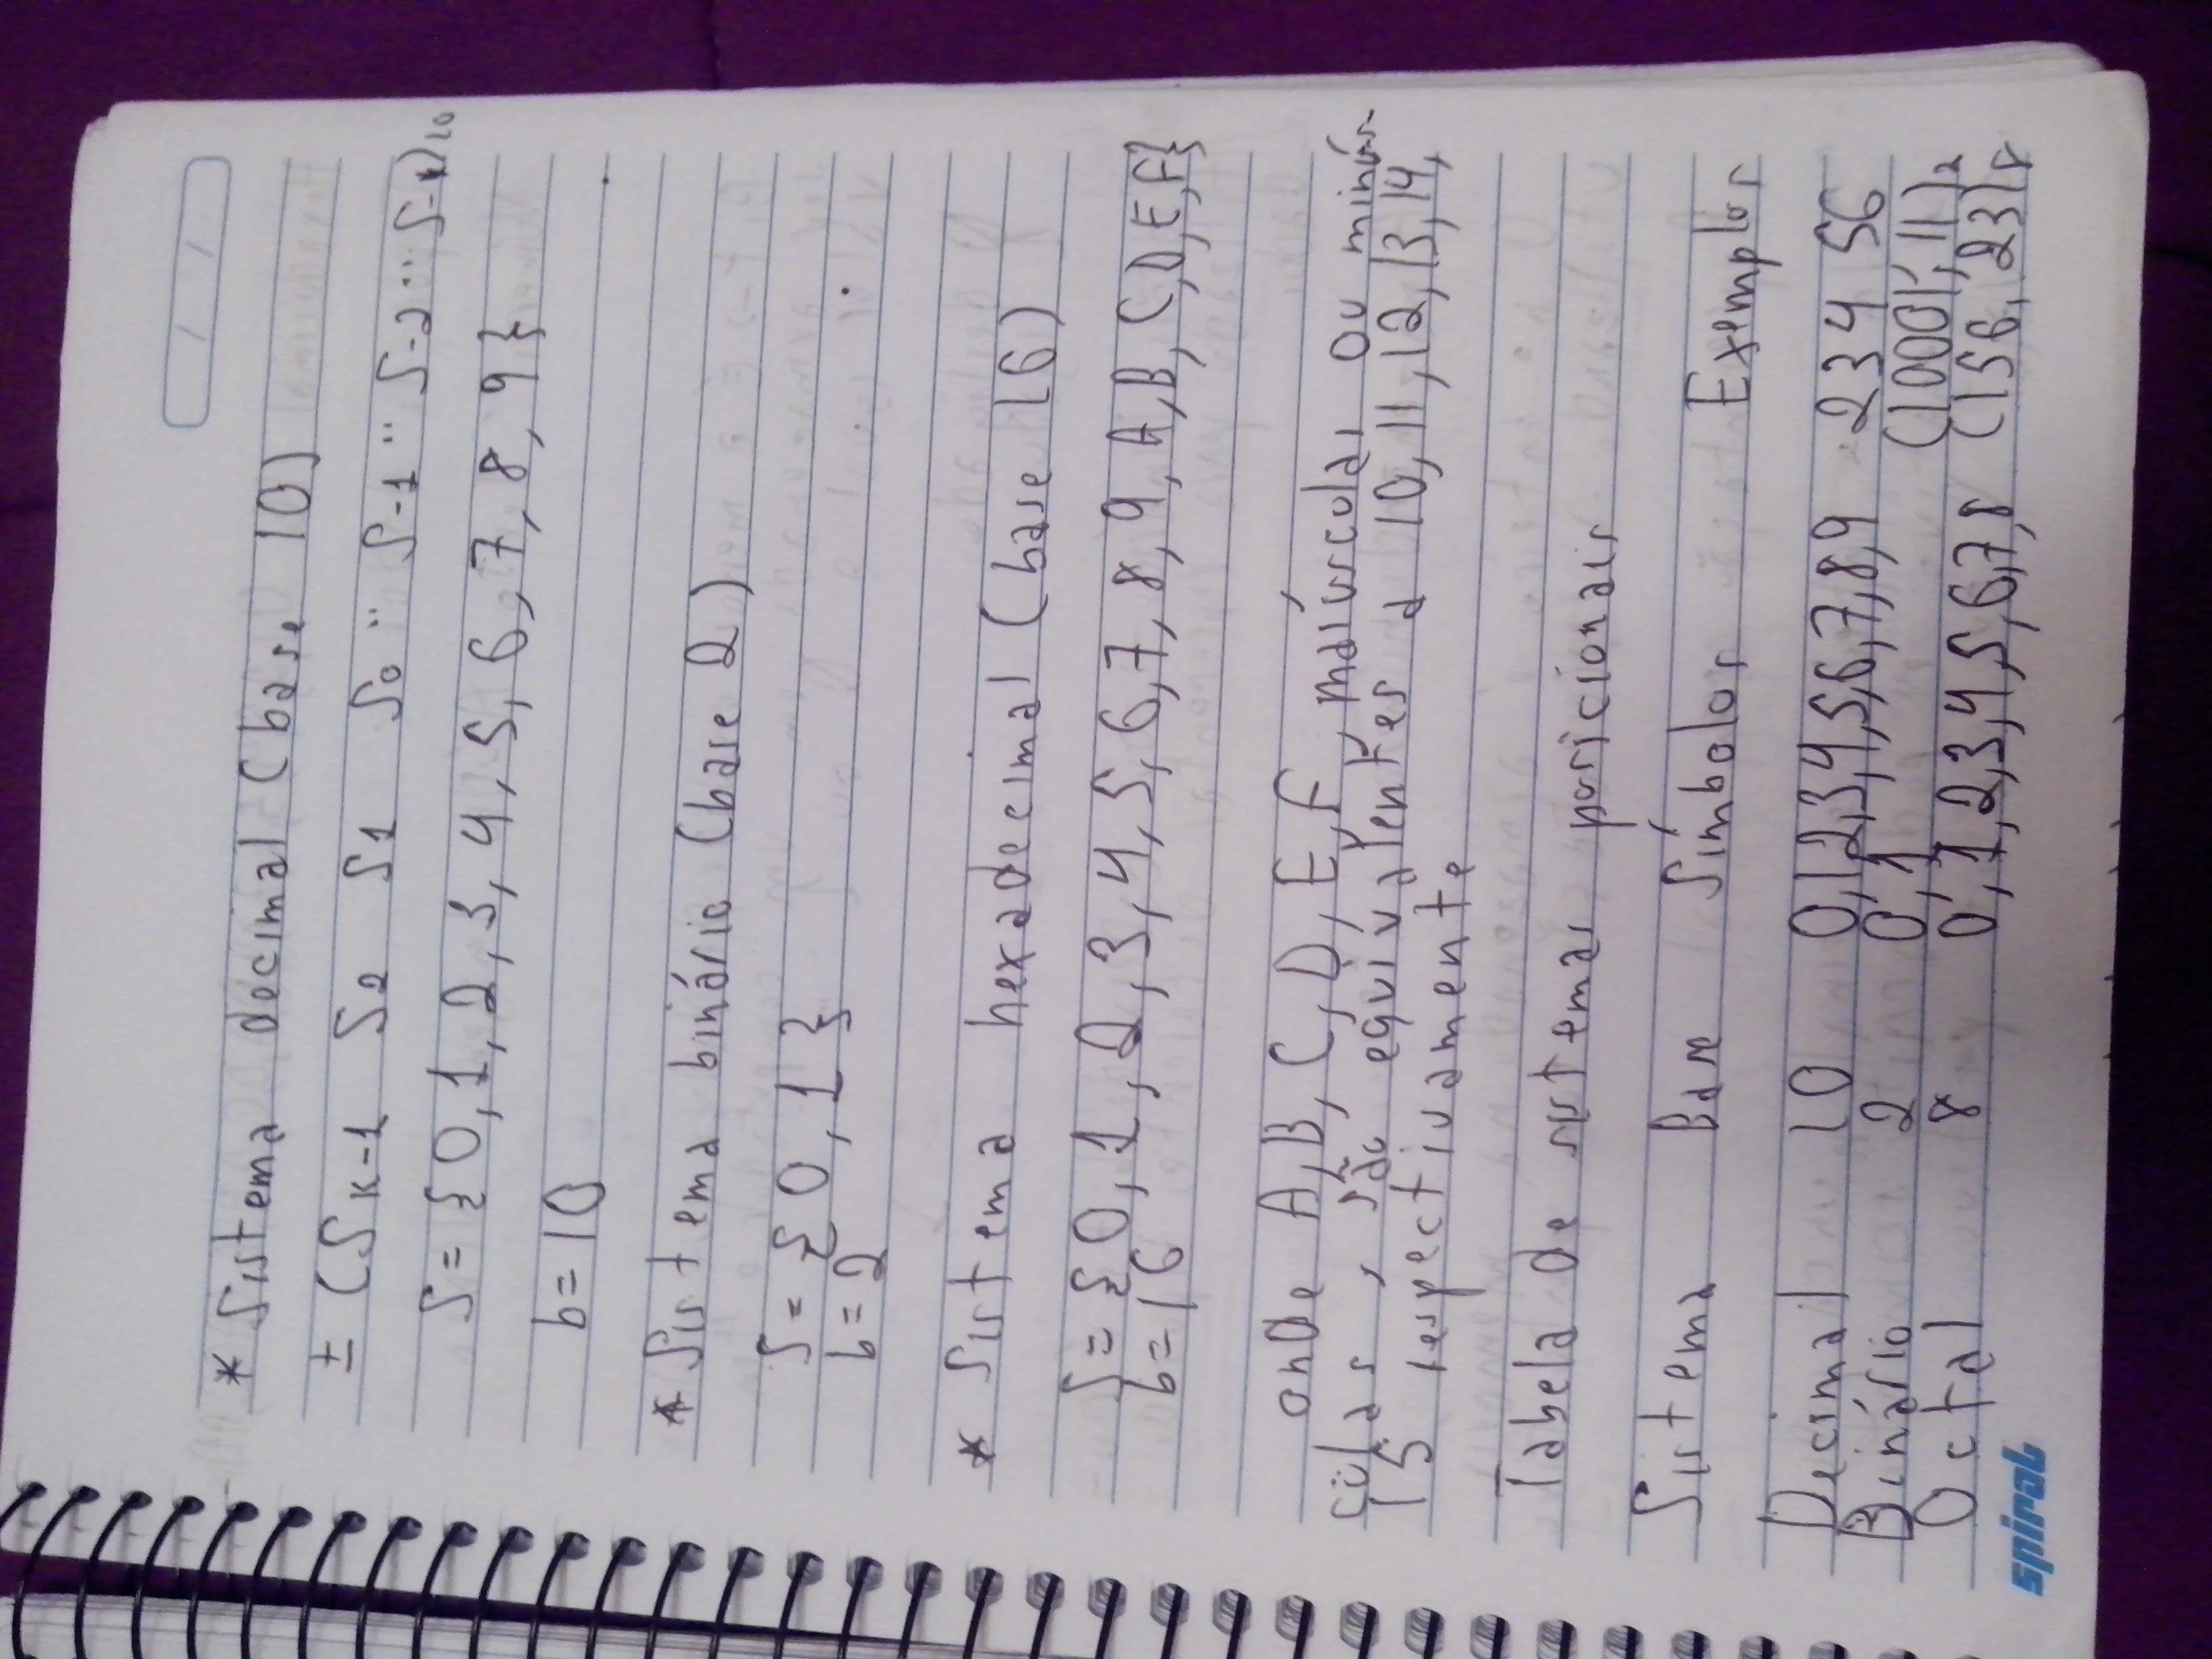 * Sistema decimal (base 10)
± (S K-1 S2 S1 S0 .. S-1 .. S-2 ... S-k)10
S = { 0, 1, 2, 3, 4, 5, 6, 7, 8, 9 }
b = 10
* Sistema binário (base 2)
S = { 0, 1 }
b = 2
* Sistema hexadecimal (base 16)
S = { 0, 1, 2, 3, 4, 5, 6, 7, 8, 9, A, B, C, D, E, F }
b = 16
onde A, B, C, D, E, F, maíusculas ou minús-
culas, são equivalentes a 10, 11, 12, 13, 14,
15 respectivamente
Tabela de sistemas posicionais
Sistema Base Símbolos Exemplos
Decimal 10 0,1,2,3,4,5,6,7,8,9 234 56
Binário 2 0,1 (10001,11)2
Octal 8 0,1,2,3,4,5,6,7,8 (156,23)8
spiral